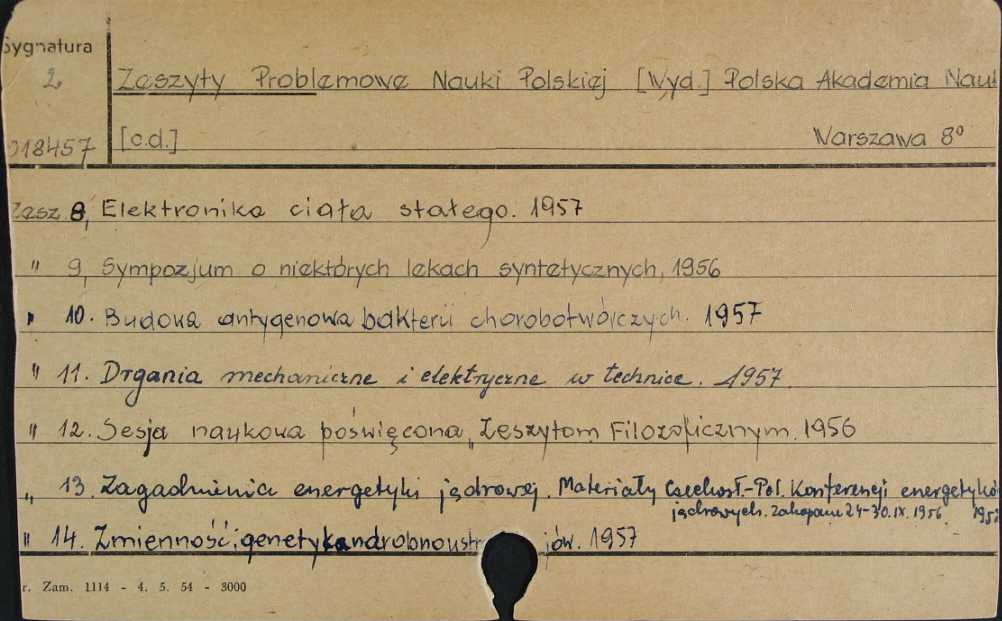 Sygnatura
2 Zeszyty Problemowe Nauki Polskiej [Wyd.] Polska Akademia Nauk
018457 [c.d.] Warszawa 8°
Zesz. 8, Elektronika ciała stałego. 1957
" 9, Sympozjum o niektórych lekach syntetycznych, 1956
" 10. Budowa antygenowa bakterii chorobotwórczych. 1957
" 11. Drgania mechaniczne i elektryczne w technice. 1957
" 12. Sesja naukowa poświęcona „Zeszytom Filozoficznym. 1956
" 13. Zagadnienia energetyki jądrowej. Materiały Czechosł.-Pol. Konferencji energetyków
jądrowych. Zakopane 24-30.IX.1956 1957
" 14. Zmienność, genetyka drobnoustr jów. 1957
r. Zam. 1114 - 4. 5. 54 - 3000